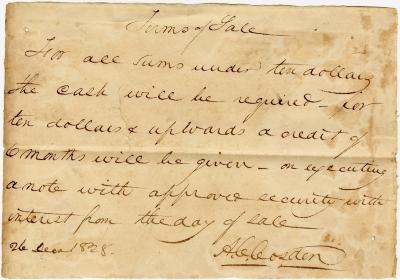 Terms of Sale
For all sums under ten dollars
the cash will be required – for
ten dollars & upwards a credit of
6 months will be given – on executing
a note with approved security with
interest from the day of sale
26 Decr 1828. A. C. Cosden